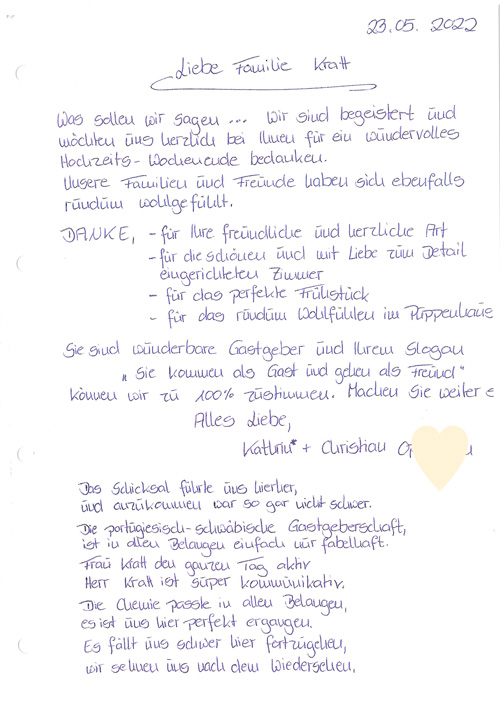 23.05.2022
Liebe Familie Kratt
Was sollen wir sagen ... Wir sind begeistert und
möchten uns herzlich bei Ihnen für ein wundervolles
Hochzeits-Wochenende bedanken.
Unsere Familien und Freunde haben sich ebenfalls
rundum wohlgefühlt.
DANKE, - für Ihre freundliche und herzliche Art
- für die schönen und mit Liebe zum Detail
eingerichteten Zimmer
- für das perfekte Frühstück
- für das rundum Wohlfühlen im Puppenhause
Sie sind wunderbare Gastgeber und Ihrem Slogan
„Sie kommen als Gast und gehen als Freund"
können wir zu 100% zustimmen. Machen Sie weiter
Alles Liebe,
Kathrin + Christian
Das Schicksal führte uns hierher,
und anzukommen war so gar nicht schwer.
Die portugiesisch-schwäbische Gastgeberschaft,
ist in allen Belangen einfach nur fabelhaft.
Frau Kratt den ganzen Tag aktiv
Herr Kratt ist super kommunikativ.
Die Chemie passte in allen Belangen,
es ist uns hier perfekt ergangen.
Es fällt uns schwer hier fortzugehen,
wir sehnen uns nach dem Wiedersehen,